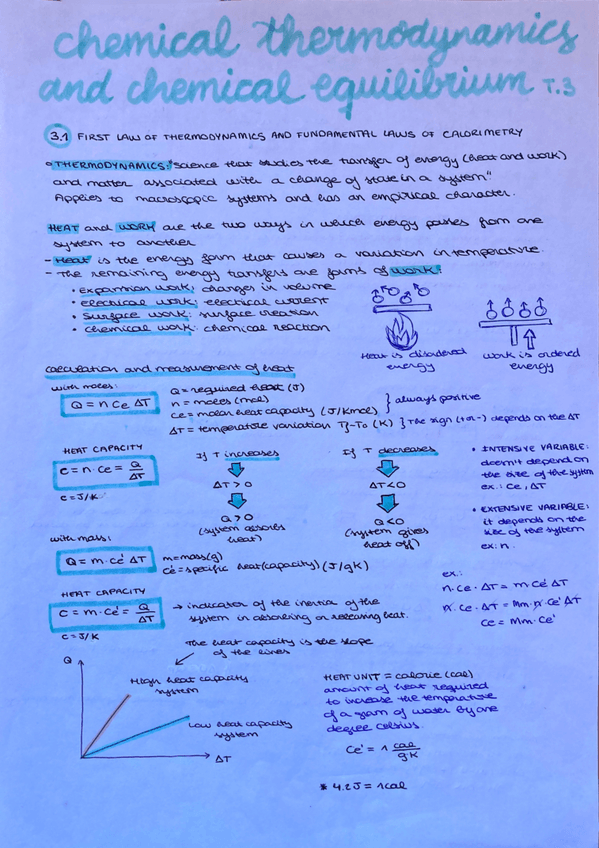 chemical thermodynamics
and chemical equilibrium T.3
3.1 FIRST LAW OF THERMODYNAMICS AND FUNDAMENTAL LAWS OF CALORIMETRY
◦ THERMODYNAMICS: "Science that studies the transfer of energy (heat and work)
and matter associated with a change of state in a system"
Applies to macroscopic systems and has an empirical character.
HEAT and WORK are the two ways in which energy passes from one
system to another
- Heat is the energy form that causes a variation in temperature.
- The remaining energy transfers are forms of work:
• expansion work: changes in volume
• electrical work: electrical current
• surface work: surface creation
• chemical work: chemical reaction
Heat is disordered
energy
work is ordered
energy
calculation and measurement of heat
with moles:
Q = n Ce ΔT
Q = required heat (J)
n = moles (mol)
Ce = molar heat capacity (J/Kmol)
} always positive
ΔT = temperature variation Tf-To (K) } The sign (+ or -) depends on the ΔT
HEAT CAPACITY
C = n · Ce = Q/ΔT
C = J/K
If T increases
ΔT > 0
Q > 0
(system absorbs
heat)
If T decreases
ΔT < 0
Q < 0
(system gives
heat off)
• INTENSIVE VARIABLE:
doesn't depend on
the size of the system
ex.: Ce, ΔT
• EXTENSIVE VARIABLE:
it depends on the
size of the system
ex: n.
with mass:
Q = m · Ce' ΔT
m = mass (g)
Ce' = specific heat (capacity) (J/gK)
HEAT CAPACITY
C = m · Ce' = Q/ΔT
C = J/K
→ indicator of the inertia of the
system in absorbing or releasing heat.
ex.:
n · Ce · ΔT = m · Ce' ΔT
n · Ce · ΔT = Mm · n · Ce' ΔT
Ce = Mm · Ce'
The heat capacity is the slope
of the lines
Q
High heat capacity
system
Low heat capacity
system
ΔT
HEAT UNIT = calorie (cal)
amount of heat required
to increase the temperature
of a gram of water by one
degree celsius.
Ce' = 1 cal/gK
* 4.2 J = 1 cal